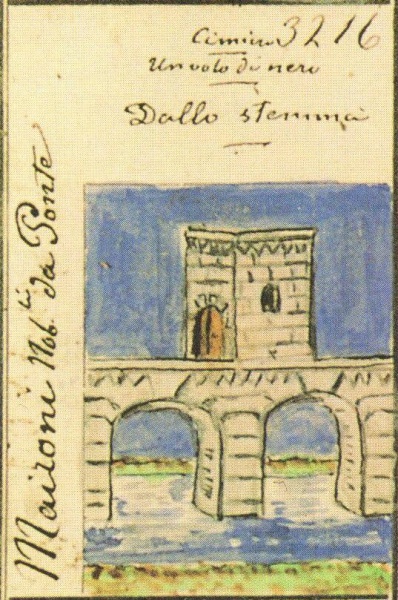 Cimiero 3216
Un volo di nero
Dallo stemma
Maironi Nob.li da Ponte